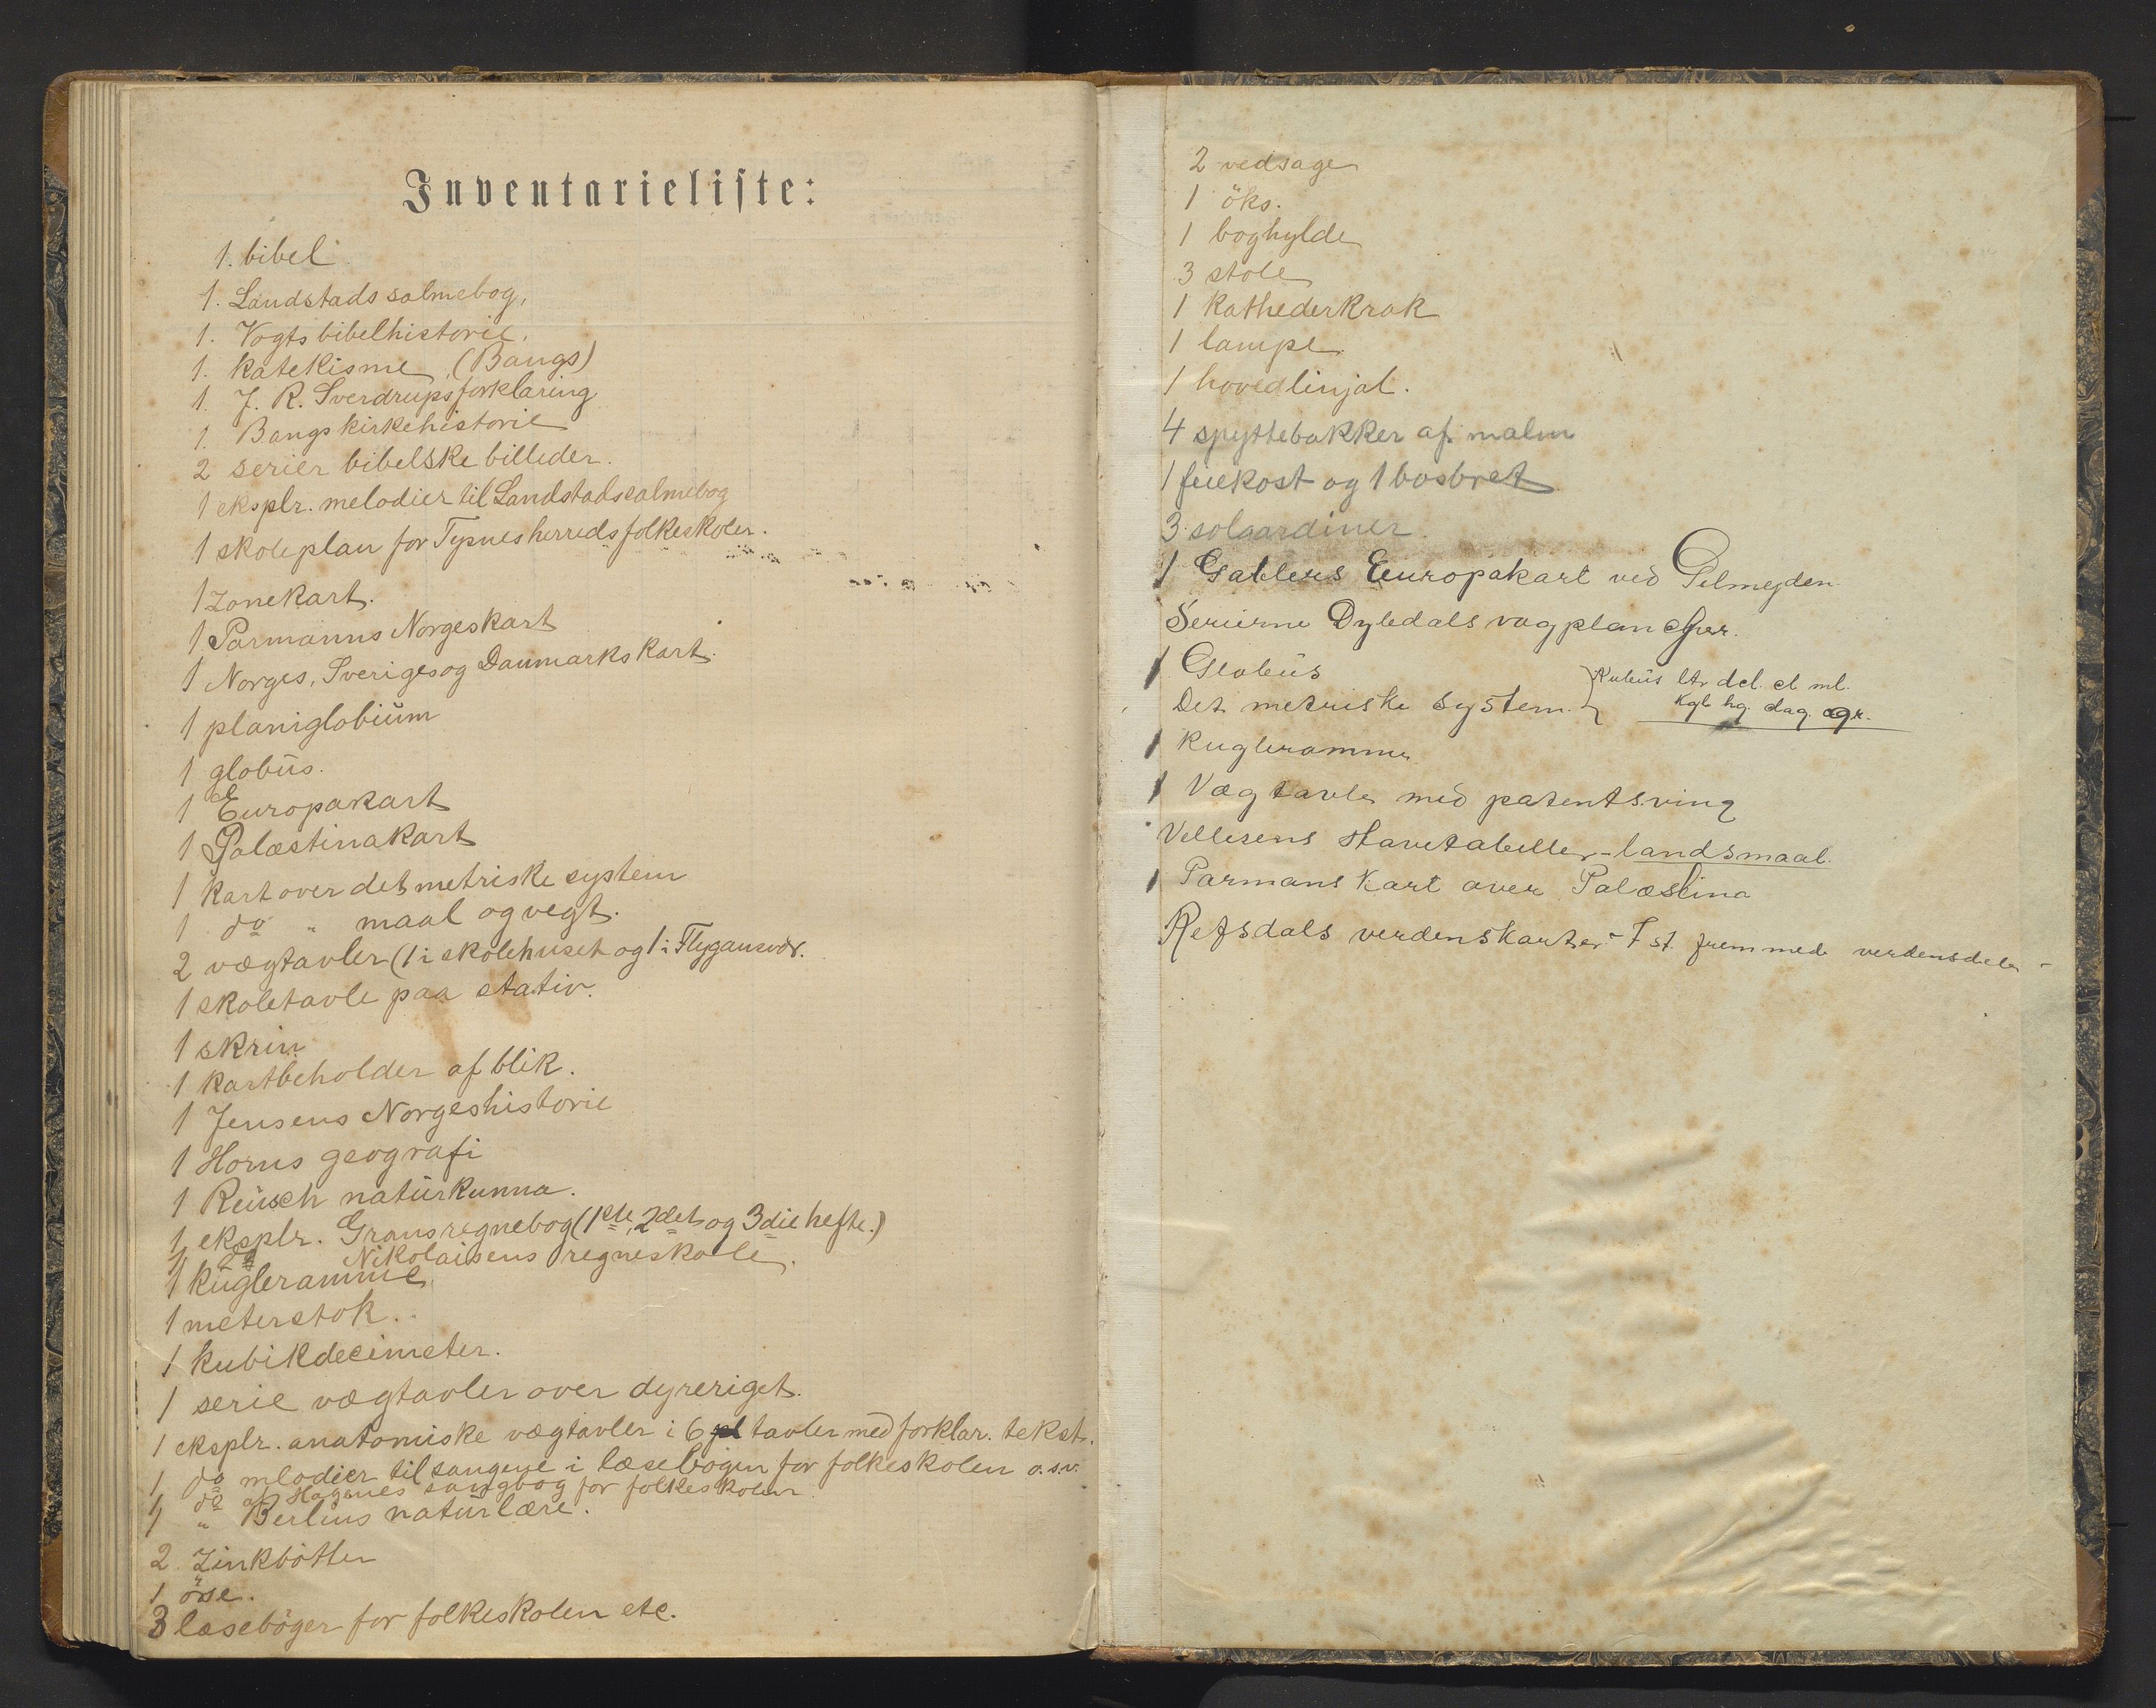 Inventarieliste:
1. bibel.
1. Landstads salmebog,
1. Vogts bibelhistorie.
1. katekisme (Bangs)
1. J. R. Sverdrups forklaring
1. Bangs kirkehistorie
2 serier bibelske billeder.
1 eksplr. melodier til Landstads salmebog
1 skoleplan for Tysnes herreds folkeskoler.
1 zonekart.
1 Parmanns Norgeskart
1 Norges, Sveriges og Danmarks kart.
1 planiglobium
1 globus.
1 Europakart
1 Palæstinakart
1 kart over det metriske system
1 do " maal og vegt.
2 vægtavler (1 i skolehuset og 1 i Flygansvær.
1 skoletavle paa stativ.
1 skrin
1 kartbeholder af blik.
1 Jensens Norgeshistorie
1 Horns geografi
1 Reusch naturkunna.
1 eksplr. Grans regnebog (1ste, 2det og 3die hefte.)
1 do Nikolaisens regneskole.
1 kugleramme
1 meterstok.
1 kubikdecimeter.
1 serie vægtavler over dyreriget.
1 eksplr. anatomiske vægtavler i 6 pl tavler med forklar. tekst.
1 do mlodier til sangene i læsebogen for folkeskolen o.s.v.
1 do af Hagenes sangbog for folkeskolen
1 " Berlins naturlære.
2 Zinkbøtter
1 öse.
3 læsebøger for folkeskolen etc.
2 vedsage
1 öks.
1 boghylde
3 stole
1 kathederkrak
1 lampe.
1 hovedlinjal.
4 spyttebakker af malm
1 feiekost og 1 bosbret
3 solgardiner.
1 Gablers Europakart ved Gilmeyden.
Serierne Dybdals vægplancher.
1 Globus
Det metriske system. } Kubus ltr dcl. cl ml.
Kgl hg. dag. gr.
1 Kugleramme
1 Vægtavle med patentsving
Vellesens stavetabeller - landsmaal.
1 Parmans Kart over Palæstina
Refsdals verdenskarter - 7 st. fremmede verdensdele -